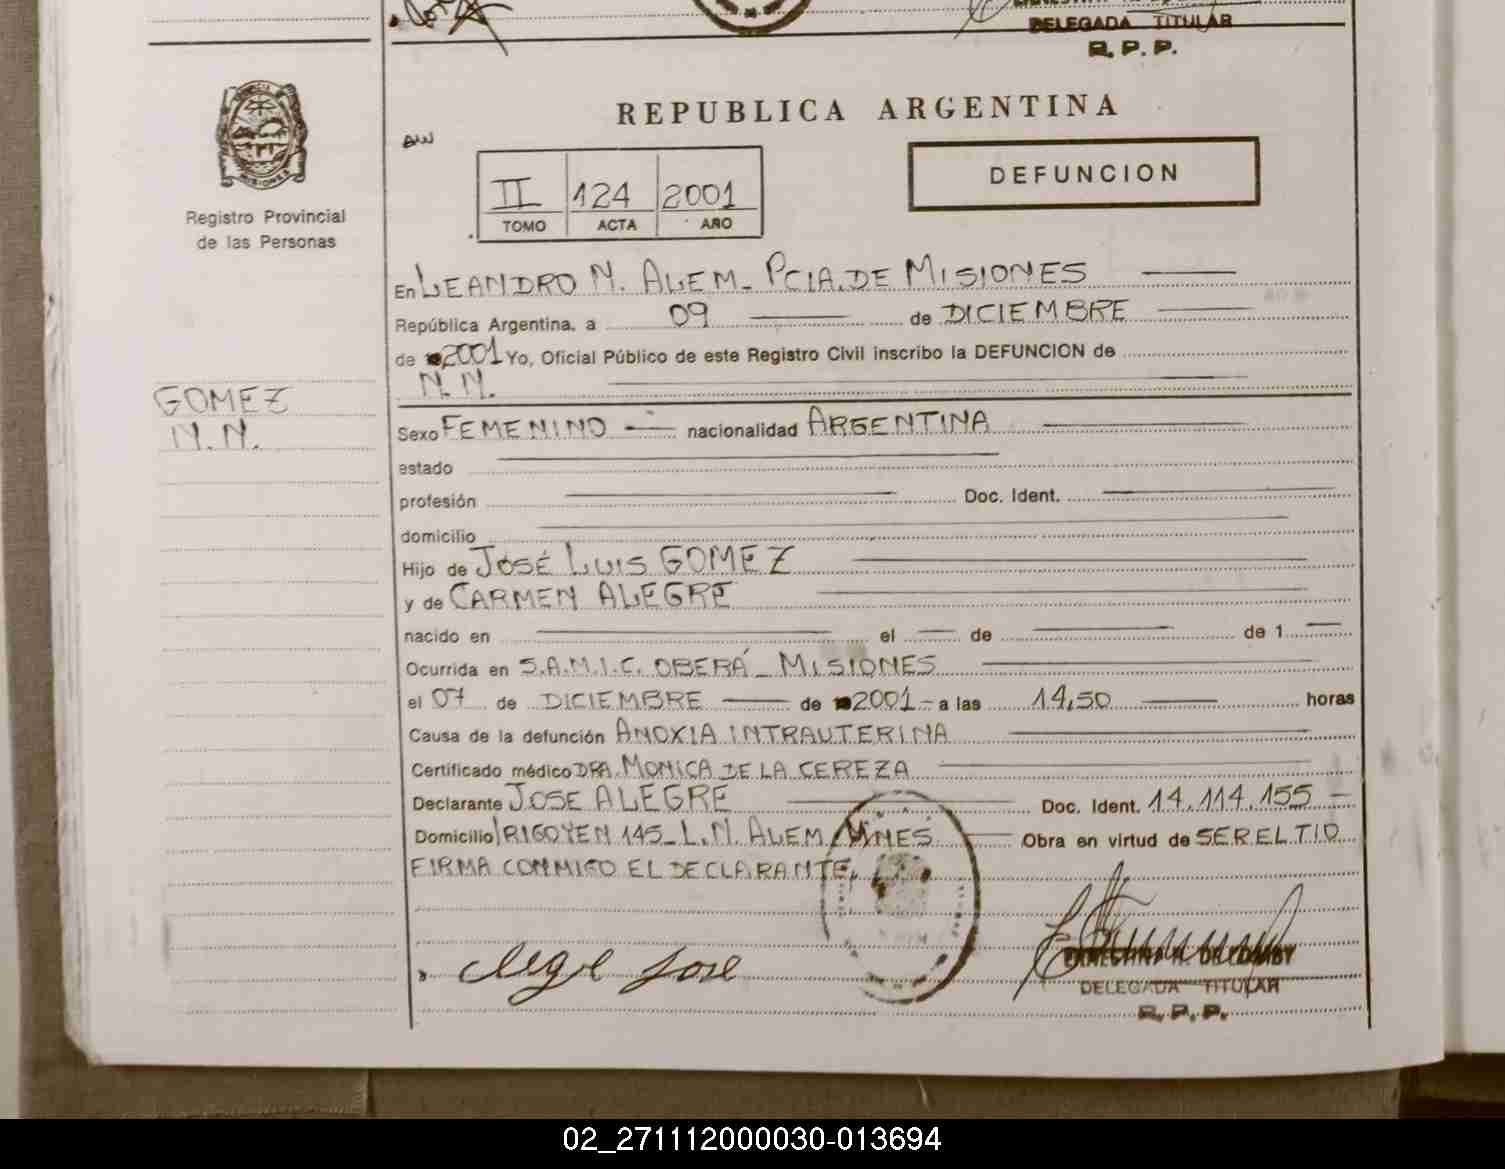 DELEGADA TITULAR
R.P.P.
REPUBLICA ARGENTINA
DEFUNCION
II 124 2001
TOMO ACTA AÑO
MISIONES
Registro Provincial
de las Personas
En LEANDRO N. ALEM_ PCIA. DE MISIONES
República Argentina, a 09 de DICIEMBRE
de 2001 Yo, Oficial Público de este Registro Civil inscribo la DEFUNCION de
N.N.
GOMEZ
N.N.
Sexo FEMENINO nacionalidad ARGENTINA
estado
profesión Doc. Ident.
domicilio
Hijo de JOSÉ LUIS GOMEZ
y de CARMEN ALEGRE
nacido en el de de 1
Ocurrida en S.A.M.I.C. OBERÁ_ MISIONES
el 07 de DICIEMBRE de 2001 a las 14,50 horas
Causa de la defunción ANOXIA INTRAUTERINA
Certificado médico DRA. MONICA DE LA CEREZA
Declarante JOSE ALEGRE Doc. Ident. 14.114.155
Domicilio IRIGOYEN 145_ L.N. ALEM, MNES Obra en virtud de SER EL TIO
FIRMA CONMIGO EL DECLARANTE.
Alegre Jose
DELEGADA TITULAR
R.P.P.
02_271112000030-013694